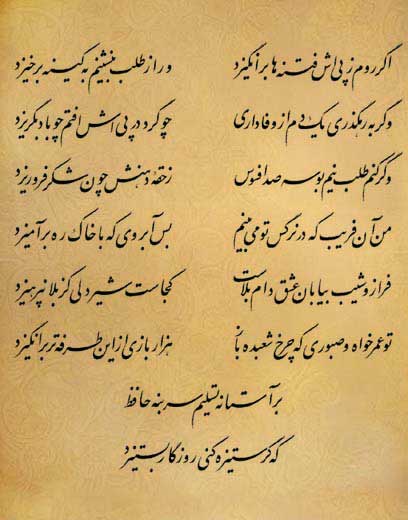 اگر روم ز پی اش فتنه ها برانگیزد ور از طلب بنشینم به کینه برخیزد
وگر به رهگذری یک دم از وفاداری چو گرد در پی اش افتم چو باد بگریزد
وگر کنم طلب نیم بوسه صد افسوس ز حقه دهنش چون شکر فرو ریزد
من آن فریب که در نرگس تو می بینم بس آبروی که با خاک ره برآمیزد
فراز و شیب بیابان عشق دام بلاست کجاست شیردلی کز بلا نپرهیزد
تو عمر خواه و صبوری که چرخ شعبده باز هزار بازی از این طرفه تر برانگیزد
بر آستانه تسلیم سر بنه حافظ
که گر ستیزه کنی روزگار بستیزد